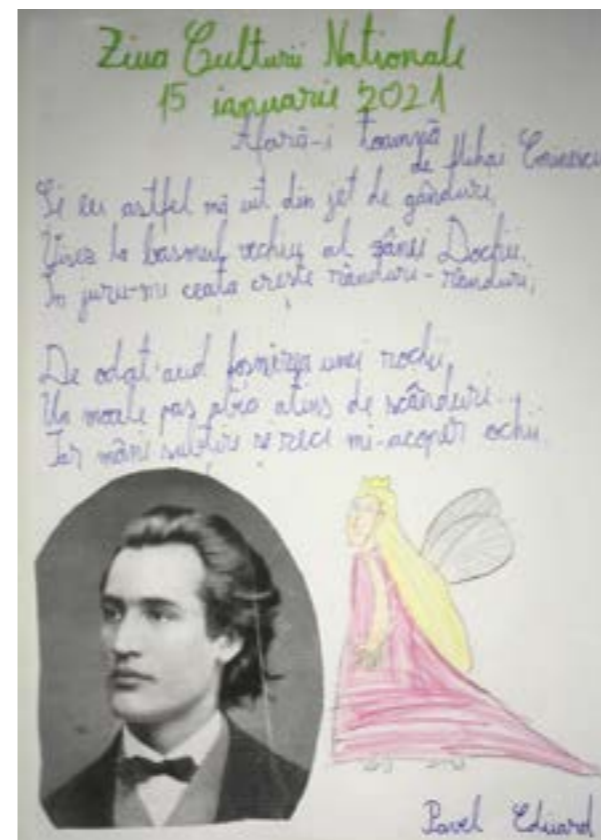 Ziua Culturii Nationale
15 ianuarie 2021
Afară-i toamnă
de Mihai Eminescu
Și eu astfel mă uit din jet de gânduri,
Visez la basmul vechiu al zânei Dochii.
În juru-mi ceața crește rânduri-rânduri;
De odat'aud foșnirea unei rochii,
Un moale pas abia atins de scânduri...
Iar mâni subțiri și reci mi-acopăr ochii.
Pavel Eduard